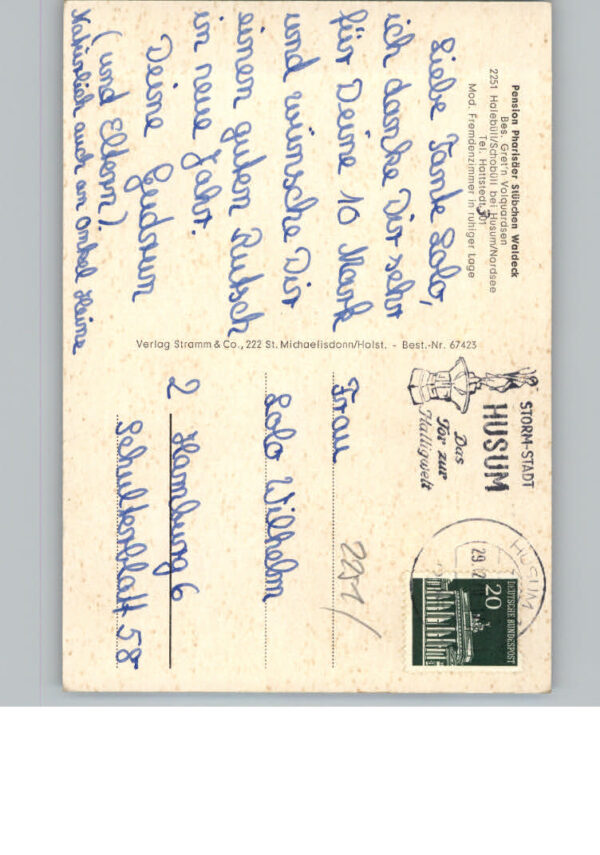 Pension Pharisäer Stübchen Waldeck
Bes. Gret'n Volquardsen
2251 Halebüll/Schobüll bei Husum/Nordsee
Tel. Hattstedt 301
Mod. Fremdenzimmer in ruhiger Lage
Liebe Tante Lolo,
ich danke Dir sehr
für Deine 10 Mark
und wünsche Dir
einen guten Rutsch
in neue Jahr.
Deine Gudrun
(und Eltern).
Natürlich auch an Onkel Heine
Verlag Stramm & Co., 222 St. Michaelisdonn/Holst. - Best.-Nr. 67423
STORM-STADT
HUSUM
Das
Tor zur
Halligwelt
HUSUM
29.12
DEUTSCHE BUNDESPOST
20
Frau
2251/
Lolo Wilhelm
2 Hamburg 6
Schulterblatt 58